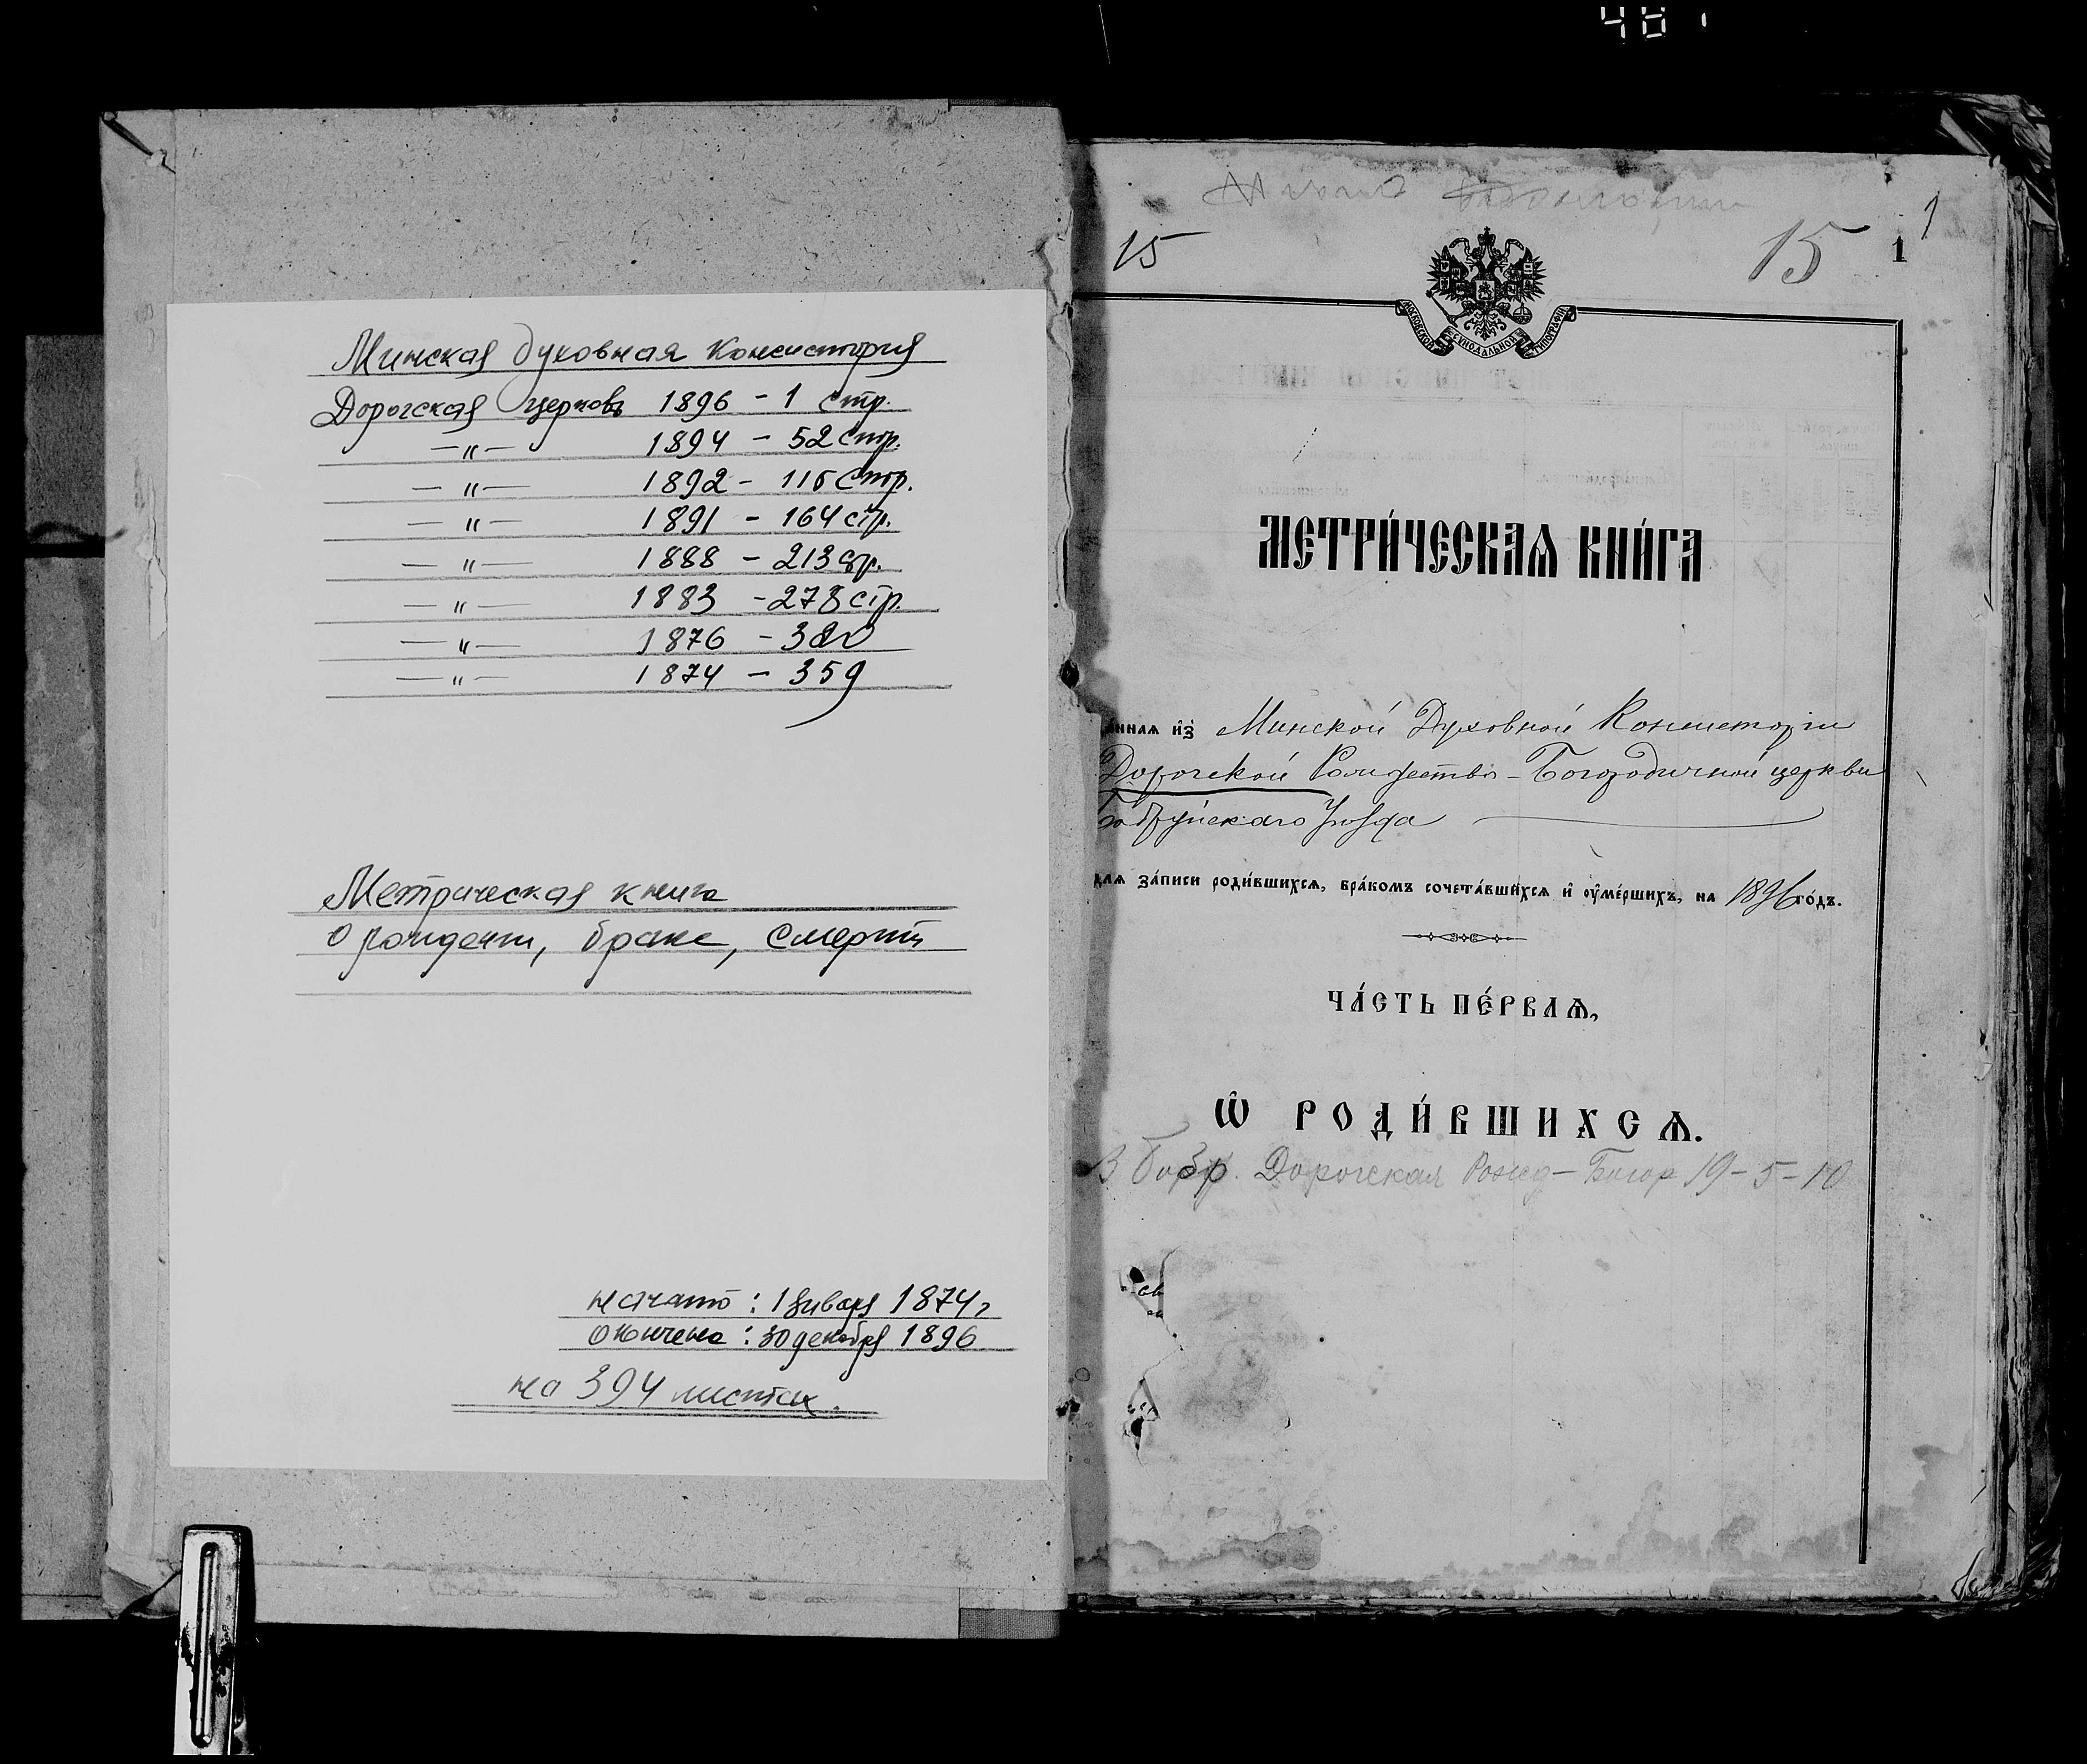 Минская духовная консистория
Дорогская церковь 1896 - 1 стр.
—"— 1894 - 52 стр.
—"— 1892 - 115 стр.
—"— 1891 - 164 стр.
—"— 1888 - 213 стр.
—"— 1883 - 278 стр.
—"— 1876 - 320
—"— 1874 - 359
Метрическая книга
о рождении, браке, смерти
начато: 1 января 1874 г
окончена: 30 декабря 1896
на 394 листах.
15
15
1
1
МОСКОВСКОЙ СѴНОДАЛЬНОЙ ТИПОГРАФІИ
МЕТРИ́ЧЕСКАѦ КНИ́ГА
а́ннаѧ и҆з̾ Минской Духовной Консисторіи
Дорогской Рождество-Богородичной церкви
Бобруйскаго Уѣзда
длѧ за́писи роди́вшихсѧ, бра́комъ сочета́вшихсѧ и҆ оу҆ме́ршихъ, на 1896 го́дъ.
ЧА́СТЬ ПЕ́РВАѦ,
Ѡ҆ РОДИ́ВШИХСѦ.
Бобр. Дорогская Рожд-Богор 19-5-10